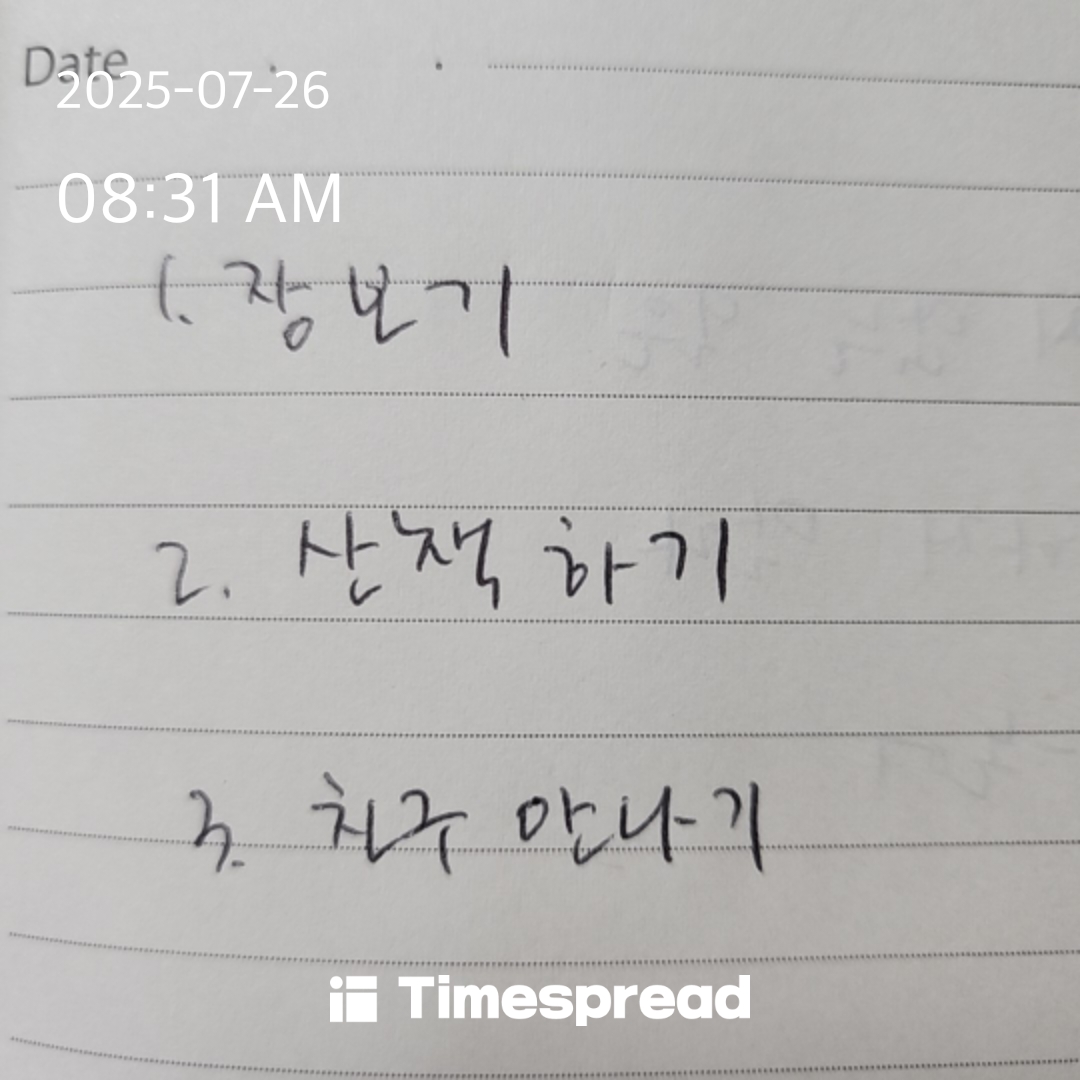 Date . .
2025-07-26
08:31 AM
1. 장보기
2. 산책 하기
3. 친구 만나기
Timespread